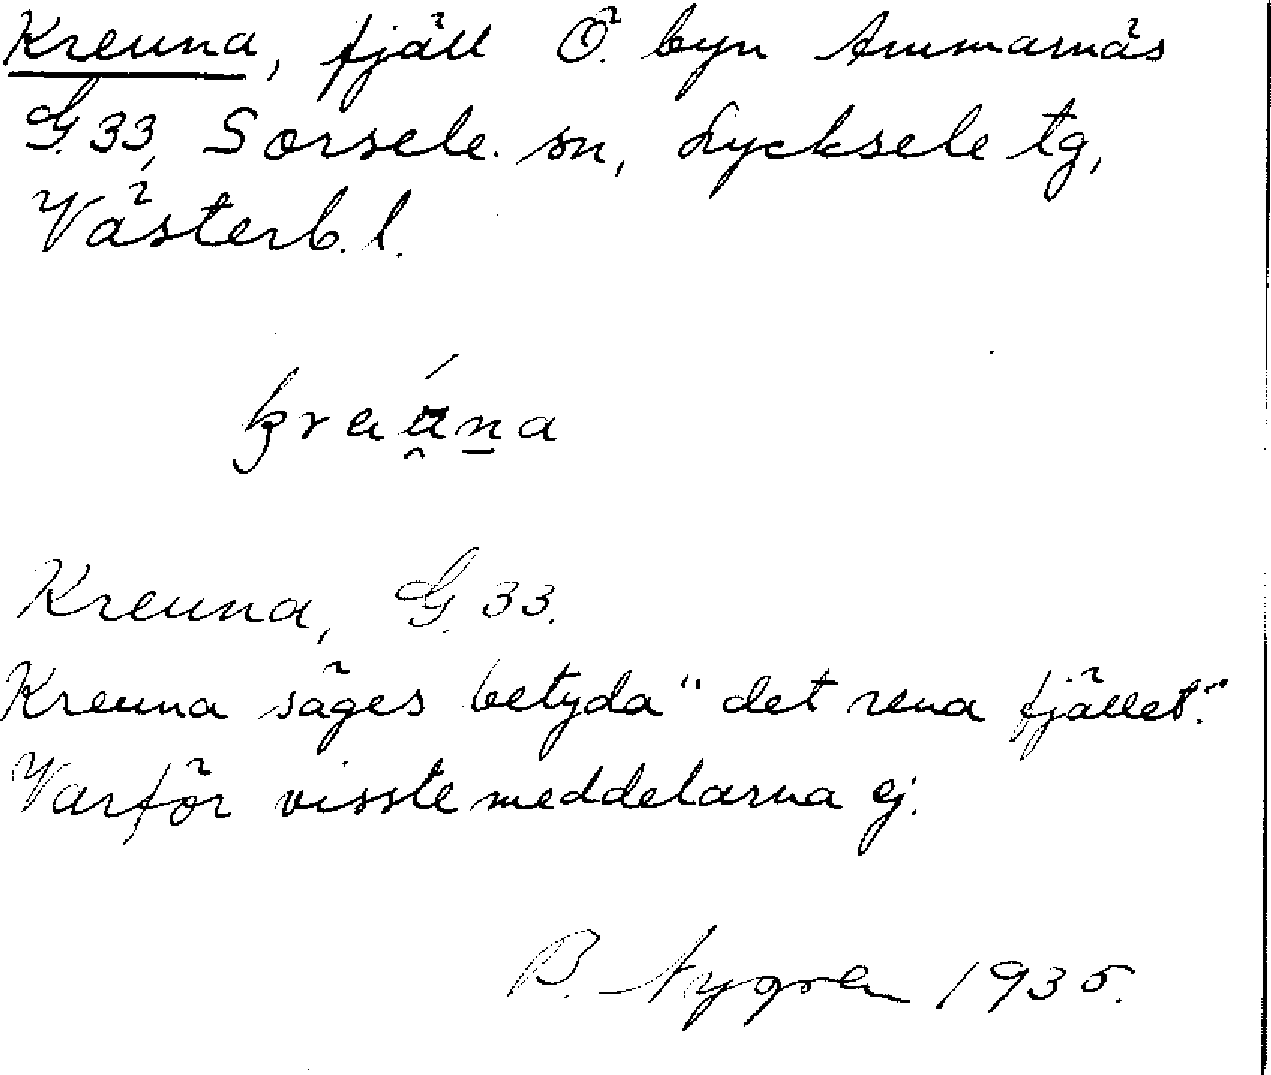 Kreuna, fjäll Ö. byn Ammarnäs
G. 33, Sorsele sn, Lycksele tg,
Västerb. l.
Kreuna, G. 33.
Kreuna säges betyda "det rena fjället."
Varför visste meddelarna ej.
B. Nygren 1935.